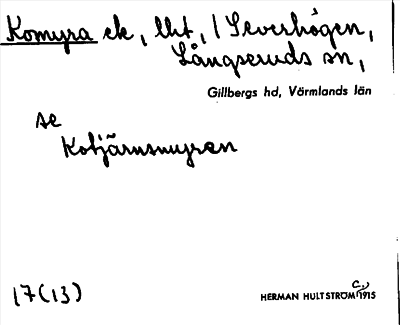 Komyra ek, lht, / Severhögen,
Långseruds sn,
Gillbergs hd, Värmlands län
se
Kotjärnsmyren
17(13)
HERMAN HULTSTRÖM 1915